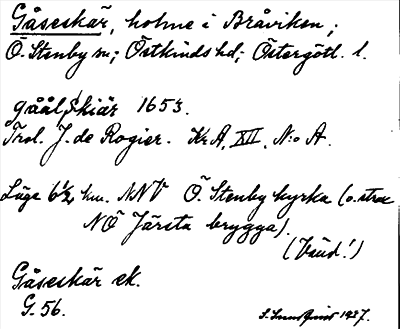 Gåseskär, holme i Bråviken;
Ö. Stenby sn; Östkinds hd; Östergötl. l.
gåålskiär 1653.
Trol. J. de Rogier. Kr A, XII, N:o A.
Läge 6½ km. NNV Ö. Stenby kyrka (o. strax
NÖ Järsta brygga).
(Vänd!)
Gåseskär ek.
G. 56.
1927.